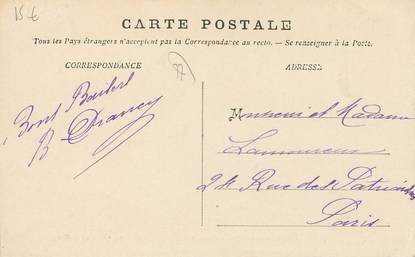 15 €
CARTE POSTALE
Tous les Pays étrangers n'acceptent pas la Correspondance au recto. — Se renseigner à la Poste.
CORRESPONDANCE
77
ADRESSE
Bons Baisers
B. Drancy
Monsieur et Madame
Lamoureux
24 Rue des Patriarches
Paris